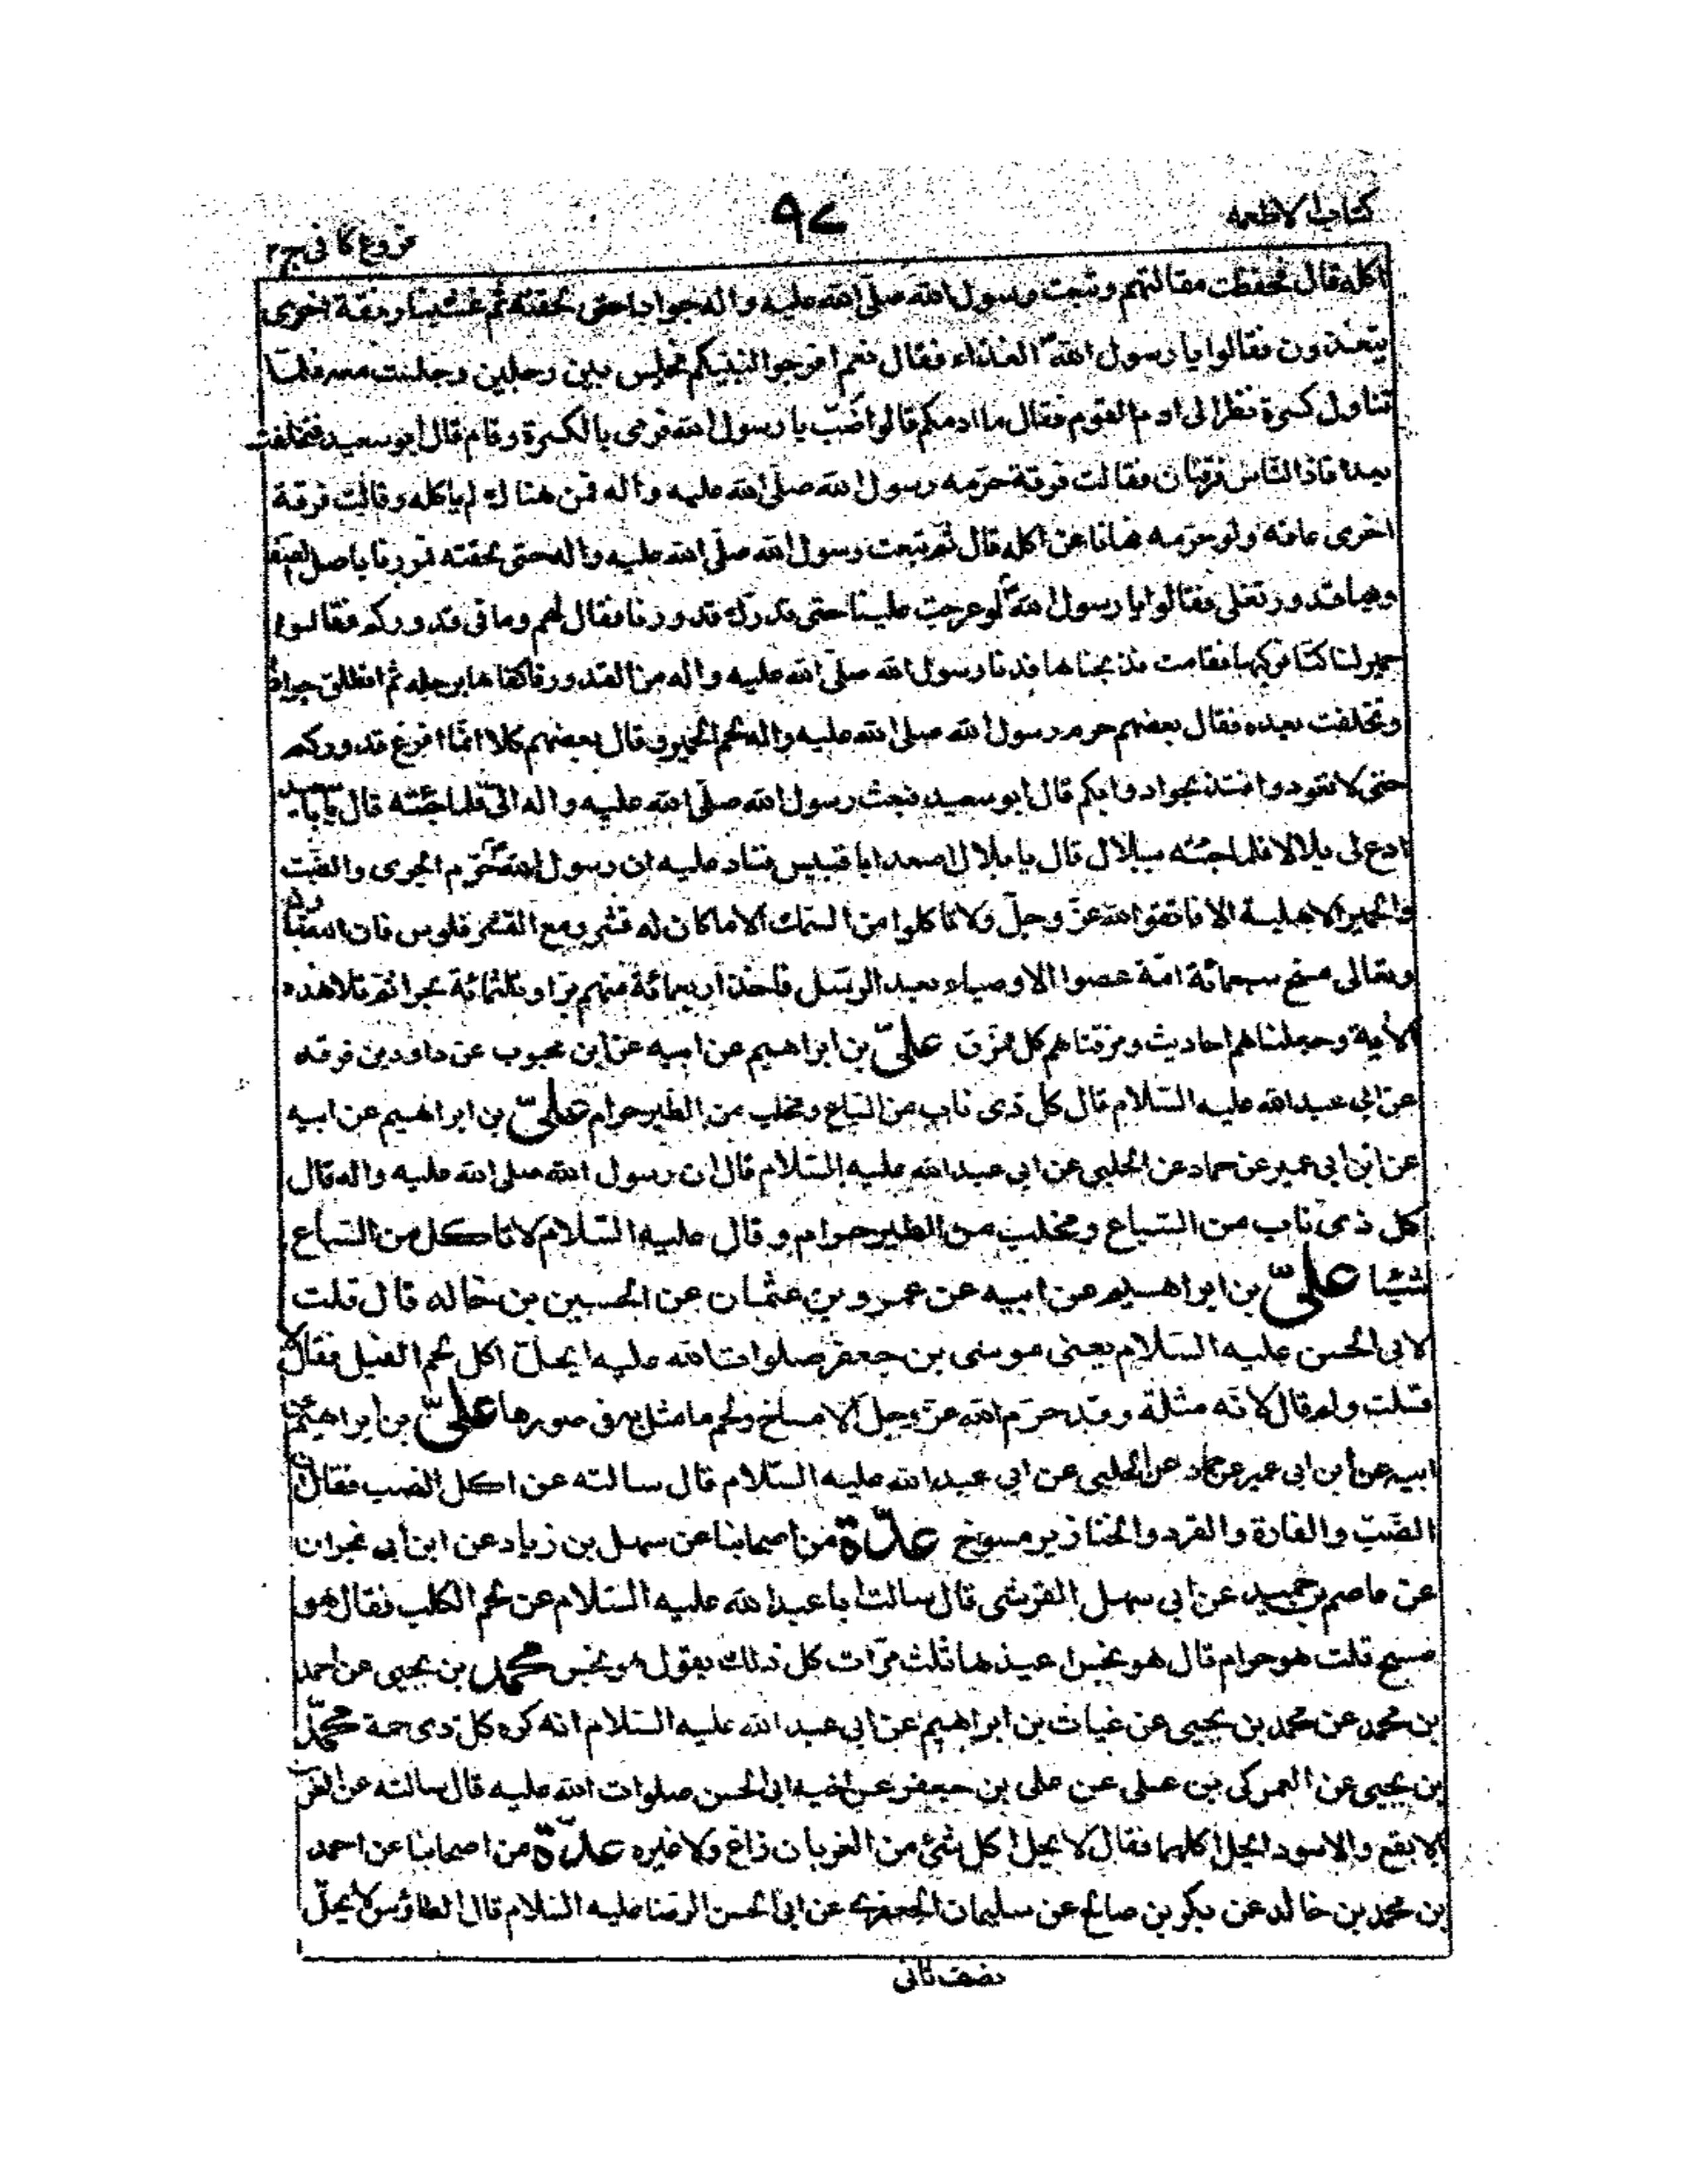 كتاب الاطعمه
٩٧
فروع كافى ج٢
اكله قال فحفظت مقالتهم وتبعت رسول الله صلى الله عليه واله جوادا حتى لحقته ثم غشينا رفقة اخرى
يتغذون فقالوا يا رسول الله الغذاء فقال نعم افرجوا لنبيكم فجلس بين رجلين وجلست معه فلما
تناول كسرة نظر الى ادم القوم فقال ما ادمكم قالوا ضب يا رسول الله فرمى بالكسرة وقام قال ابو سعيد فتخلفت
بعده فاذا الناس فرقتان فقالت فرقة حرمه رسول الله صلى الله عليه واله فمن هناك لم ياكله وقالت فرقة
اخرى عافه ولو حرمه لنهانا عن اكله قال ثم تبعت رسول الله صلى الله عليه واله حتى لحقته فمررنا باصل الصفا
وبها قدور تغلى فقالوا يا رسول الله لو عرجت علينا حتى تدرك قدورنا فقال لهم وما فى قدوركم فقالوا
حمير لنا كنا نركبها فقامت فذبحناها فدنا رسول الله صلى الله عليه واله من القدور فاكفاها برجله ثم انطلق جوادا
وتخلفت بعده فقال بعضهم حرم رسول الله صلى الله عليه واله لحم الحمير وقال بعضهم كلا انما افرغ قدوركم
حتى لا تعودوا فتذبحوا دوابكم قال ابو سعيد فبعث رسول الله صلى الله عليه واله الىّ فلما جئته قال يا با سعيد
ادع لى بلالا فلما جئته ببلال قال يا بلال اصعد ابا قبيس فناد عليه ان رسول الله حرم الجرى والضب
والحمير الاهلية الا فاتقوا الله عز وجل ولا تاكلوا من السمك الا ما كان له قشر ومع القشر فلوس فان الله تبارك
وتعالى مسخ سبعمائة امة عصوا الاوصياء بعد الرسل فاخذ اربعمائة منهم برا وثلثمائة بحرا ثم تلا هذه
الاية وجعلناهم احاديث ومزقناهم كل ممزق علىّ بن ابراهيم عن ابيه عن ابن محبوب عن داود بن فرقد
عن ابى عبد الله عليه السلام قال كل ذى ناب من السباع ومخلب من الطير حرام علىّ بن ابراهيم عن ابيه
عن ابن ابى عمير عن حماد عن الحلبى عن ابى عبد الله عليه السلام قال ان رسول الله صلى الله عليه واله قال
كل ذى ناب من السباع ومخلب من الطير حرام وقال عليه السلام لا تاكل من السباع
شيئا علىّ بن ابراهيم عن ابيه عن عمرو بن عثمان عن الحسين بن خالد قال قلت
لابى الحسن عليه السلام يعنى موسى بن جعفر صلوات الله عليه ايحل اكل لحم الفيل فقال لا
فقلت ولم قال لانه مثلة وقد حرم الله عز وجل الامساخ ولحم ما مثل به فى صورها علىّ بن ابراهيم عن
ابيه عن ابن ابى عمير عن حماد عن الحلبى عن ابى عبد الله عليه السلام قال سالته عن اكل الضب فقال ان
الضب والفارة والقرد والخنازير مسوخ عدّة من اصحابنا عن سهل بن زياد عن ابن ابى نجران
عن عاصم بن حميد عن ابى سهل القرشى قال سالت ابا عبد الله عليه السلام عن لحم الكلب فقال هو
مسخ قلت هو حرام قال هو نجس اعيدها ثلث مرات كل ذلك يقول هو نجس محمد بن يحيى عن احمد
بن محمد عن محمد بن يحيى عن غياث بن ابراهيم عن ابى عبد الله عليه السلام انه كره كل ذى حمة محمد
بن يحيى عن العمركى بن على عن على بن جعفر عن اخيه ابى الحسن صلوات الله عليه قال سالته عن الغراب
الابقع والاسود ايحل اكلهما فقال لا يحل اكل شئ من الغربان زاغ ولا غيره عدّة من اصحابنا عن احمد
بن محمد بن خالد عن بكر بن صالح عن سليمان الجعفرى عن ابى الحسن الرضا عليه السلام قال الطاؤس لا يحل
نصف ثانى